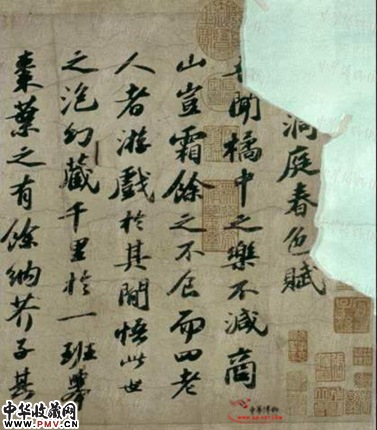 洞庭春色賦
聞橘中之樂不減商
山豈霜餘之不食而四老
人者游戲於其間悟此世
之泡幻藏千里於一班舉
棗葉之有餘納芥子其
中华收藏网
WWW.PMV.CN